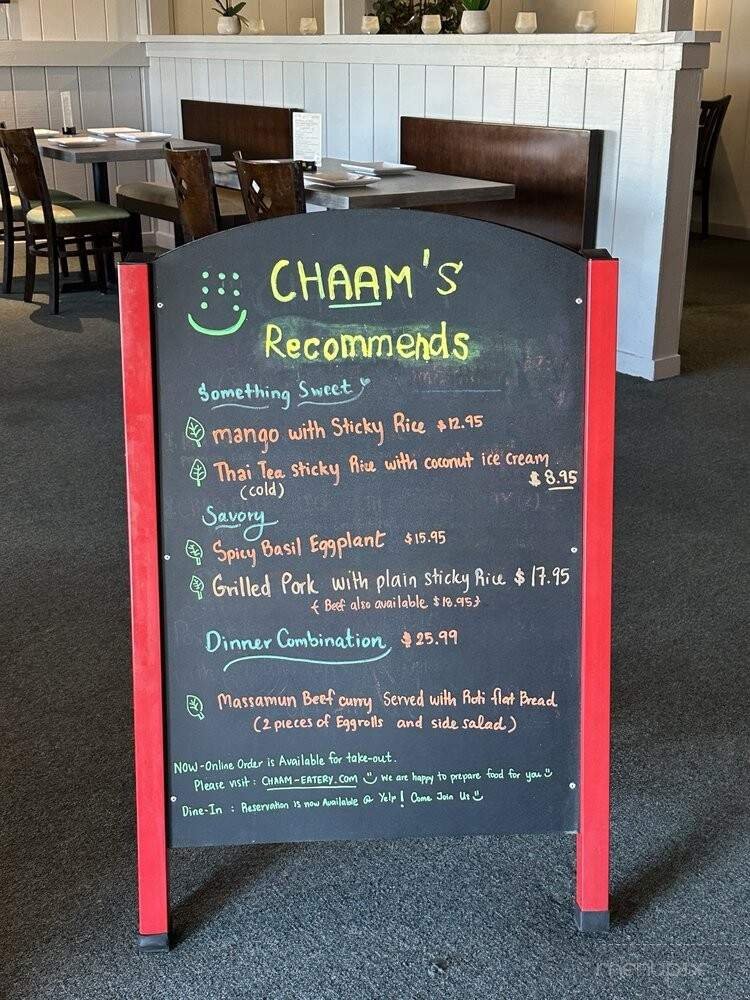 CHAAM'S
Recommends
Something Sweet
mango with Sticky Rice $12.95
Thai Tea sticky Rice with coconut ice cream
(cold) $8.95
Savory
Spicy Basil Eggplant $15.95
Grilled Pork with plain sticky Rice $17.95
{ Beef also available $18.95}
Dinner Combination $25.99
Massamun Beef curry Served with Roti flat Bread
(2 pieces of Eggrolls and side salad)
NOW-Online Order is Available for take-out.
Please visit: CHAAM-EATERY.COM We are happy to prepare food for you
Dine-In : Reservation is now Available @ Yelp! Come Join Us
menupix